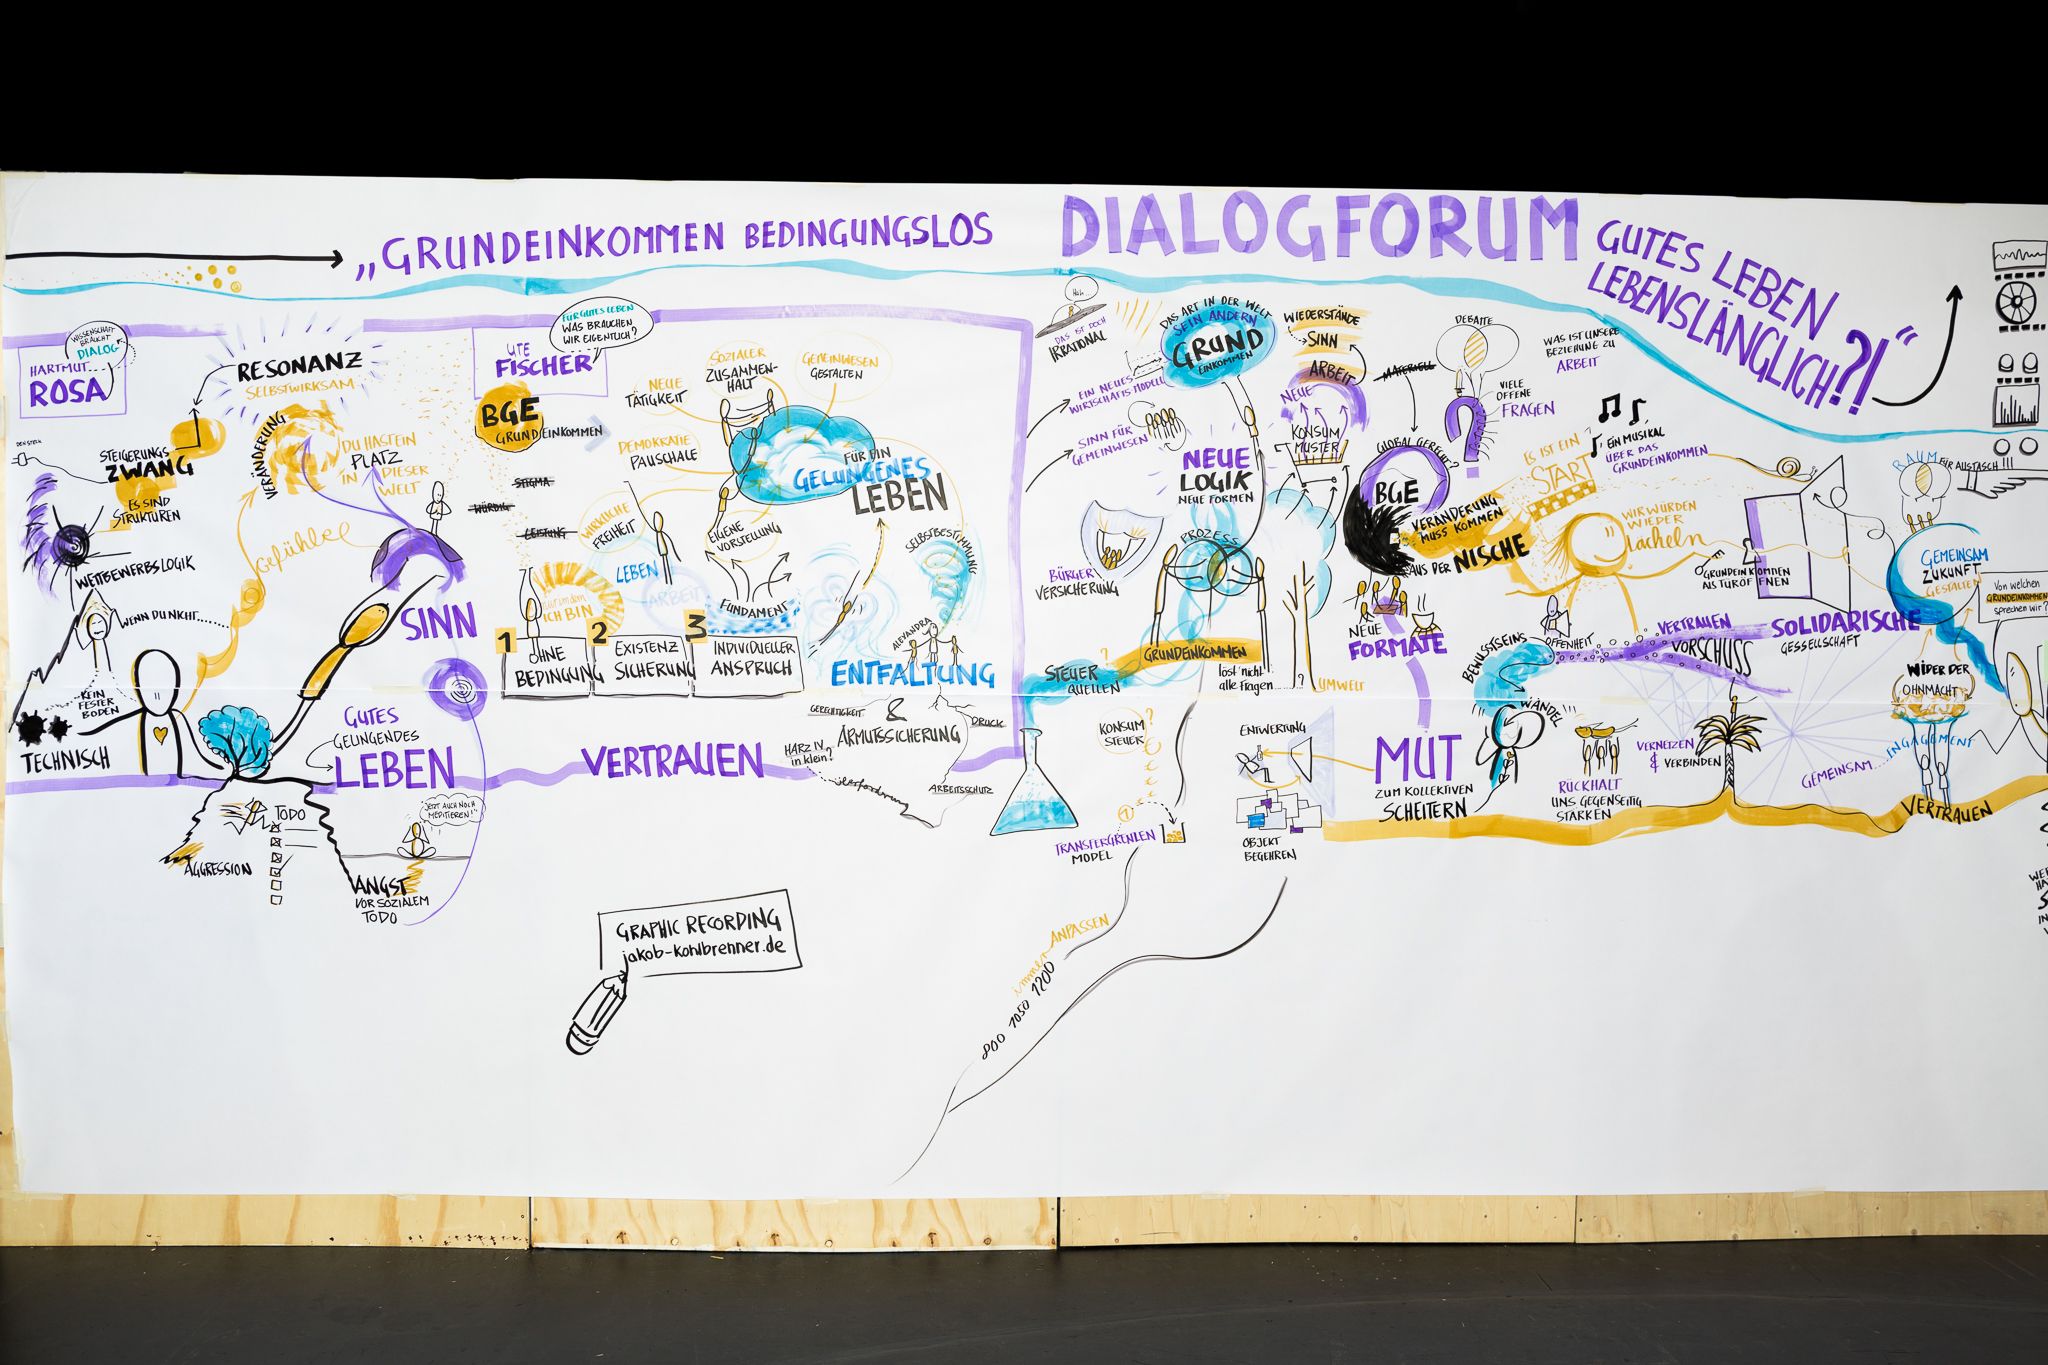 „GRUNDEINKOMMEN BEDINGUNGSLOS
DIALOGFORUM
GUTES LEBEN
LEBENSLÄNGLICH?!"
WISSENSCHAFT
BRAUCHT
DIALOG
HARTMUT
ROSA
RESONANZ
SELBSTWIRKSAM
STEIGERUNGS
ZWANG
ES SIND
STRUKTUREN
WETTBEWERBSLOGIK
WENN DU NICHT......
KEIN
FESTER
BODEN
TECHNISCH
VERÄNDERUNG
DU HAST EIN
PLATZ
IN DIESER
WELT
Gefühle
SINN
GUTES
GELINGENDES
LEBEN
TODO
AGGRESSION
JETZT AUCH NOCH
MEDITIEREN!
ANGST
VOR SOZIALEM
TODO
UTE
FISCHER
FÜR GUTES LEBEN
WAS BRAUCHEN
WIR EIGENTLICH?
BGE
GRUNDEINKOMMEN
STIGMA
WÜRDIG
LEISTUNG
NEUE
TÄTIGKEIT
SOZIALER
ZUSAMMEN-
HALT
GEMEINWESEN
GESTALTEN
DEMOKRATIE
PAUSCHALE
FÜR EIN
GELUNGENES
LEBEN
WIRKLICHE
FREIHEIT
EIGENE
VORSTELLUNG
SELBSTBESTIMMUNG
LEBEN
ARBEIT
ICH BIN
FUNDAMENT
1
OHNE
BEDINGUNG
2
EXISTENZ
SICHERUNG
3
INDIVIDUELLER
ANSPRUCH
ALEXANDRA
ENTFALTUNG
GERECHTIGKEIT
&
DRUCK
ARMUTSSICHERUNG
HARZ IV
in klein?
ARBEITSSCHUTZ
VERTRAUEN
GRAPHIC RECORDING
jakob-kohlbrenner.de
DAS IST DOCH
IRRATIONAL
DAS ART IN DER WELT
SEIN ÄNDERN
GRUND
EINKOMMEN
EIN NEUES
WIRTSCHAFTSMODELL
SINN FÜR
GEMEINWESEN
NEUE
LOGIK
NEUE FORMEN
BÜRGER
VERSICHERUNG
PROZESS
GRUNDEINKOMMEN
löst nicht
alle Fragen
UMWELT
STEUER
QUELLEN
?
KONSUM
STEUER
?
TRANSFERGRENZEN
MODEL
immer ANPASSEN
800 1050 1200
WIEDERSTÄNDE
SINN
ARBEIT
NEUE
KONSUM
MUSTER
MATERIELL
DEBATTE
VIELE
OFFENE
FRAGEN
WAS IST UNSERE
BEZIEHUNG ZU
ARBEIT
GLOBAL GERECHT?
BGE
VERÄNDERUNG
MUSS KOMMEN
AUS DER NISCHE
ES IST EIN
START
EIN MUSIKAL
ÜBER DAS
GRUNDEINKOMMEN
WIR WÜRDEN
WIEDER
lächeln
NEUE
FORMATE
ENTWERTUNG
OBJEKT
BEGEHREN
MUT
ZUM KOLLEKTIVEN
SCHEITERN
BEWUSTSEINS
WANDEL
OFFENHEIT
VERTRAUEN
VORSCHUSS
RÜCKHALT
UNS GEGENSEITIG
STÄRKEN
VERNETZEN
&
VERBINDEN
GRUNDEINKOMMEN
ALS TÜRÖFFNEN
SOLIDARISCHE
GESSELLSCHAFT
RAUM FÜR AUSTASCH !!!
GEMEINSAM
ZUKUNFT
GESTALTEN
Von welchen
GRUNDEINKOMMEN
sprechen wir?
WIDER DER
OHNMACHT
GEMEINSAM......ENGAGEMENT
VERTRAUEN